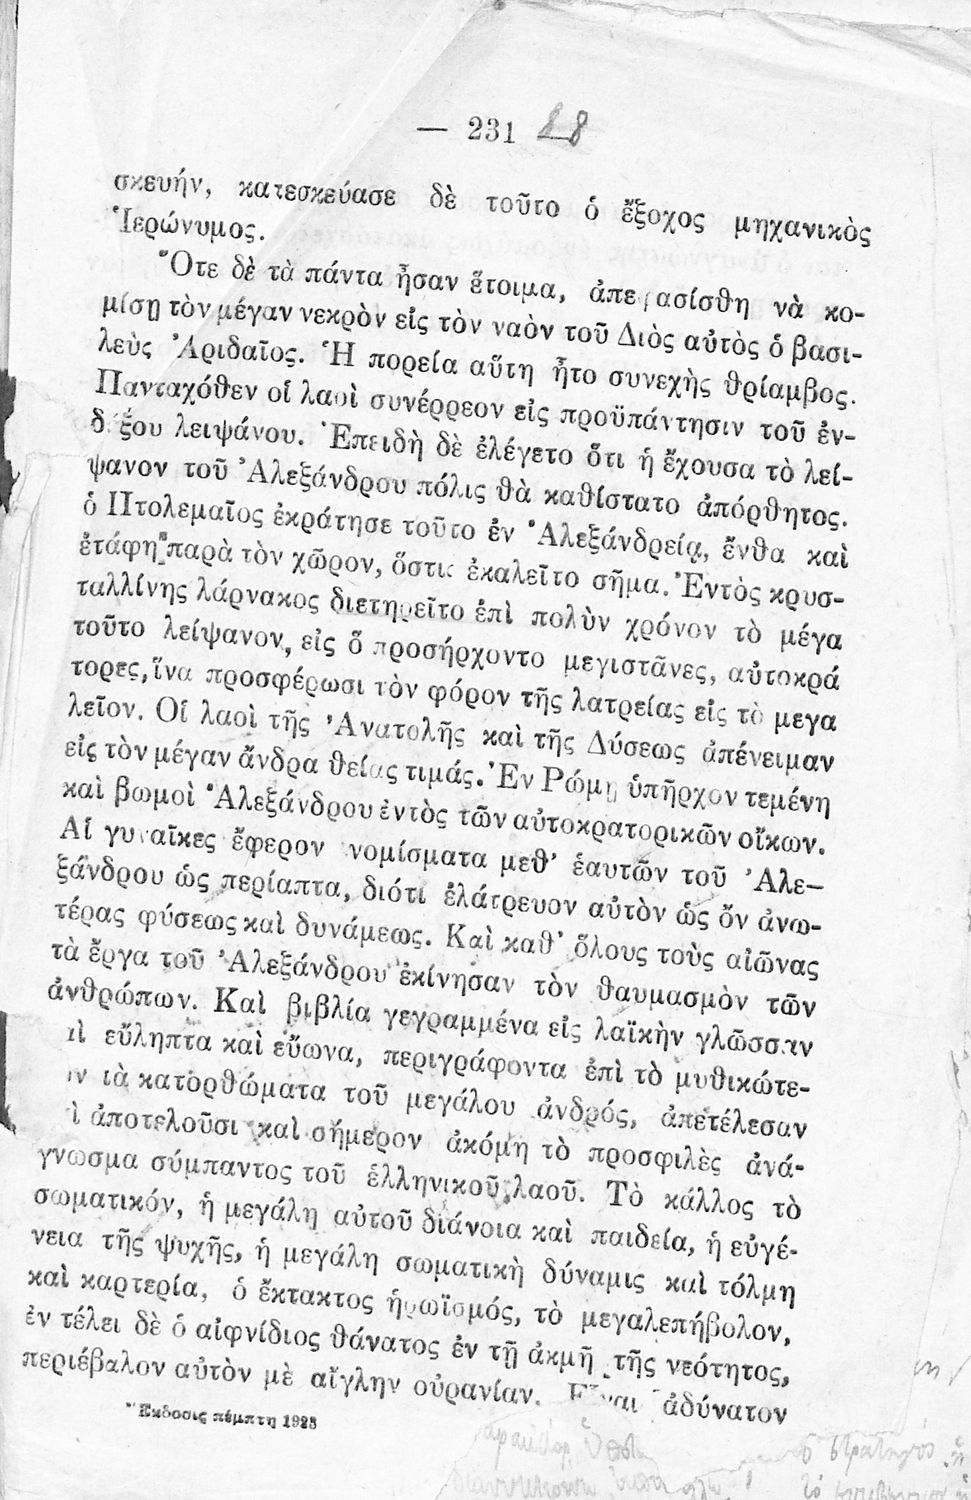 — 231 28
σκευήν, κατεσκεύασε δὲ τοῦτο ὁ ἔξοχος μηχανικὸς
Ἱερώνυμος.
Ὅτε δὲ τὰ πάντα ἦσαν ἕτοιμα, ἀπεφασίσθη νὰ κο-
μίσῃ τὸν μέγαν νεκρὸν εἰς τὸν ναὸν τοῦ Διὸς αὐτὸς ὁ βασι-
λεὺς Ἀριδαῖος. Ἡ πορεία αὕτη ἦτο συνεχὴς θρίαμβος.
Πανταχόθεν οἱ λαοὶ συνέρρεον εἰς προϋπάντησιν τοῦ ἐν-
δόξου λειψάνου. Ἐπειδὴ δὲ ἐλέγετο ὅτι ἡ ἔχουσα τὸ λεί-
ψανον τοῦ Ἀλεξάνδρου πόλις θὰ καθίστατο ἀπόρθητος.
ὁ Πτολεμαῖος ἐκράτησε τοῦτο ἐν Ἀλεξάνδρείᾳ, ἔνθα καὶ
ἐτάφη παρὰ τὸν χῶρον, ὅστις ἐκαλεῖτο σῆμα. Ἐντὸς κρυσ-
ταλλίνης λάρνακος διετηρεῖτο ἐπὶ πολὺν χρόνον τὸ μέγα
τοῦτο λείψανον, εἰς ὃ προσήρχοντο μεγιστᾶνες, αὐτοκρά
τορες, ἵνα προσφέρωσι τὸν φόρον τῆς λατρείας εἰς τὸ μεγα
λεῖον. Οἱ λαοὶ τῆς Ἀνατολῆς καὶ τῆς Δύσεως ἀπένειμαν
εἰς τὸν μέγαν ἄνδρα θείας τιμάς. Ἐν Ρώμῃ ὑπῆρχον τεμένη
καὶ βωμοὶ Ἀλεξάνδρου ἐντὸς τῶν αὐτοκρατορικῶν οἴκων.
Αἱ γυναῖκες ἔφερον νομίσματα μεθ' ἑαυτῶν τοῦ Ἀλε—
ξάνδρου ὡς περίαπτα, διότι ἐλάτρευον αὐτὸν ὡς ὂν ἀνω-
τέρας φύσεως καὶ δυνάμεως. Καὶ καθ' ὅλους τοὺς αἰῶνας
τὰ ἔργα τοῦ Ἀλεξάνδρου ἐκίνησαν τὸν θαυμασμὸν τῶν
ἀνθρώπων. Καὶ βιβλία γεγραμμένα εἰς λαϊκὴν γλῶσσαν
εὔληπτα καὶ εὔωνα, περιγράφοντα ἐπὶ τὸ μυθικώτε-
τὰ κατορθώματα τοῦ μεγάλου ἀνδρός, ἀπετέλεσαν
ἀποτελοῦσι καὶ σήμερον ἀκόμη τὸ προσφιλὲς ἀνά-
γνωσμα σύμπαντος τοῦ ἑλληνικοῦ λαοῦ. Τὸ κάλλος τὸ
σωματικόν, ἡ μεγάλη αὐτοῦ διάνοια καὶ παιδεία, ἡ εὐγέ-
νεια τῆς ψυχῆς, ἡ μεγάλη σωματικὴ δύναμις καὶ τόλμη
καὶ καρτερία, ὁ ἔκτακτος ἡρωϊσμός, τὸ μεγαλεπήβολον,
ἐν τέλει δὲ ὁ αἰφνίδιος θάνατος ἐν τῇ ἀκμῇ τῆς νεότητος,
περιέβαλον αὐτὸν μὲ αἴγλην οὐρανίαν. Εἶναι ἀδύνατον
Ἔκδοσις πέμπτη 1928
ὁ στρατηγὸς